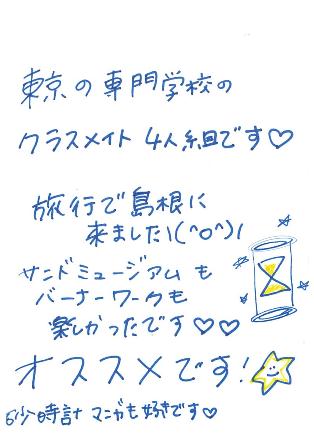 東京の専門学校の
クラスメイト 4人組です♡
旅行で島根に
来ました\(^o^)/
サンドミュージアムも
バーナーワークも
楽しかったです♡♡
オススメです!
砂時計 マンガも好きです♡